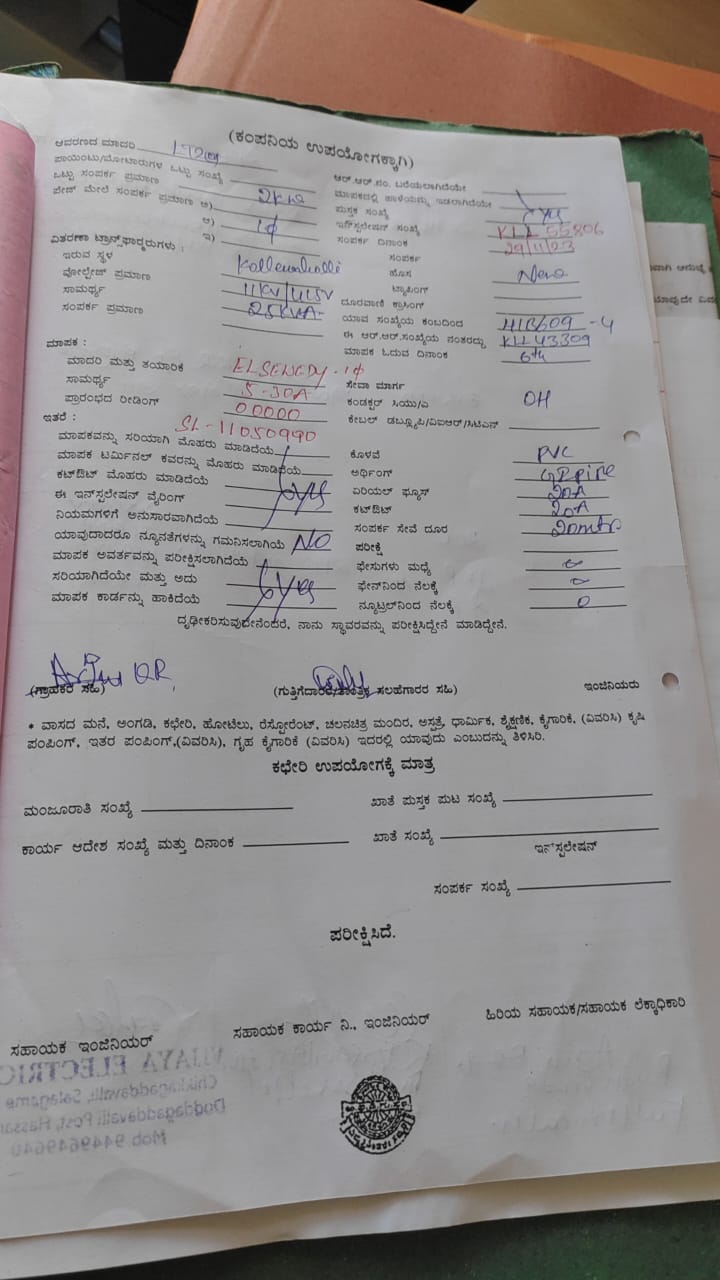 (ಕಂಪನಿಯ ಉಪಯೋಗಕ್ಕಾಗಿ)
ಆವರಣದ ಮಾದರಿ
ಪಾಯಿಂಟು/ಮೋಟಾರುಗಳ ಒಟ್ಟು ಸಂಖ್ಯೆ
ಒಟ್ಟು ಸಂಪರ್ಕ ಪ್ರಮಾಣ 2kw
ಪೇಜ್ ಮೇಲೆ ಸಂಪರ್ಕ ಪ್ರಮಾಣ ಅ)
ಆ) 1ϕ
ಇ)
ವಿತರಣಾ ಟ್ರಾನ್ಸ್‌ಫಾರ್‍ಮರುಗಳು :
ಇರುವ ಸ್ಥಳ
ವೋಲ್ಟೇಜ್ ಪ್ರಮಾಣ
ಸಾಮರ್ಥ್ಯ 11KV/415V
ಸಂಪರ್ಕ ಪ್ರಮಾಣ 25KVA
ಆರ್.ಆರ್.ನಂ. ಬರೆಯಲಾಗಿದೆಯೇ
ಮಾಪಕದಲ್ಲಿ ಹಾಳೆಯನ್ನು ಇಡಲಾಗಿದೆಯೇ
ಪುಸ್ತಕ ಸಂಖ್ಯೆ yes
ಇನ್‌ಸ್ಪಲೇಷನ್ ಸಂಖ್ಯೆ KLL 55806
ಸಂಪರ್ಕ ದಿನಾಂಕ 29/11/23
ಸಂಪರ್ಕ
ಹೊಸ New
ಟ್ಯಾಪಿಂಗ್
ದೂರವಾಣಿ ಕ್ರಾಸಿಂಗ್
ಯಾವ ಸಂಖ್ಯೆಯ ಕಂಬದಿಂದ
ಈ ಆರ್.ಆರ್.ಸಂಖ್ಯೆಯ ನಂತರದ್ದು KLL43309
ಮಾಪಕ ಓದುವ ದಿನಾಂಕ 6th
ಮಾಪಕ :
ಮಾದರಿ ಮತ್ತು ತಯಾರಿಕೆ 1ϕ
ಸಾಮರ್ಥ್ಯ 5-30A
ಪ್ರಾರಂಭದ ರೀಡಿಂಗ್ 00000
ಇತರೆ : SL-11050990
ಮಾಪಕವನ್ನು ಸರಿಯಾಗಿ ಮೊಹರು ಮಾಡಿದೆಯೆ
ಮಾಪಕ ಟರ್ಮಿನಲ್ ಕವರನ್ನು ಮೊಹರು ಮಾಡಿದೆಯೆ
ಕಟ್‌ಔಟ್ ಮೊಹರು ಮಾಡಿದೆಯೆ
ಈ ಇನ್‌ಸ್ಪಲೇಷನ್ ವೈರಿಂಗ್ yes
ನಿಯಮಗಳಿಗೆ ಅನುಸಾರವಾಗಿದೆಯೆ
ಯಾವುದಾದರೂ ನ್ಯೂನತೆಗಳನ್ನು ಗಮನಿಸಲಾಗಿಯೆ NO
ಮಾಪಕ ಅವರ್ತವನ್ನು ಪರೀಕ್ಷಿಸಲಾಗಿದೆಯೆ
ಸರಿಯಾಗಿದೆಯೇ ಮತ್ತು ಅದು
ಮಾಪಕ ಕಾರ್ಡನ್ನು ಹಾಕಿದೆಯೆ yes
ಸೇವಾ ಮಾರ್ಗ
ಕಂಡಕ್ಟರ್ ಸಿಯು/ಎ OH
ಕೇಬಲ್ ಡಬ್ಲ್ಯೂಪಿ/ವಿಐಆರ್/ಸಿಟಿಎನ್
ಕೊಳವೆ PVC
ಅರ್ಥಿಂಗ್
ಏರಿಯಲ್ ಫ್ಯೂಸ್ 20A
ಕಟ್‌ಔಟ್ 20A
ಸಂಪರ್ಕ ಸೇವೆ ದೂರ 20mtr
ಪರೀಕ್ಷೆ
ಫೇಸುಗಳು ಮಧ್ಯೆ 0
ಫೇಸ್‌ನಿಂದ ನೆಲಕ್ಕೆ 0
ನ್ಯೂಟ್ರಲ್‌ನಿಂದ ನೆಲಕ್ಕೆ 0
ದೃಢೀಕರಿಸುವುದೇನೆಂದರೆ, ನಾನು ಸ್ಥಾವರವನ್ನು ಪರೀಕ್ಷಿಸಿದ್ದೇನೆ ಮಾಡಿದ್ದೇನೆ.
(ಗ್ರಾಹಕರ ಸಹಿ) (ಗುತ್ತಿಗೆದಾರರ/ತಾಂತ್ರಿಕ ಸಲಹೆಗಾರರ ಸಹಿ) ಇಂಜಿನಿಯರು
* ವಾಸದ ಮನೆ, ಅಂಗಡಿ, ಕಛೇರಿ, ಹೋಟೆಲು, ರೆಸ್ಟೋರೆಂಟ್, ಚಲನಚಿತ್ರ ಮಂದಿರ, ಅಸ್ಪತ್ರೆ, ಧಾರ್ಮಿಕ, ಶೈಕ್ಷಣಿಕ, ಕೈಗಾರಿಕೆ, (ವಿವರಿಸಿ) ಕೃಷಿ
ಪಂಪಿಂಗ್, ಇತರ ಪಂಪಿಂಗ್,(ವಿವರಿಸಿ), ಗೃಹ ಕೈಗಾರಿಕೆ (ವಿವರಿಸಿ) ಇದರಲ್ಲಿ ಯಾವುದು ಎಂಬುದನ್ನು ತಿಳಿಸಿರಿ.
ಕಛೇರಿ ಉಪಯೋಗಕ್ಕೆ ಮಾತ್ರ
ಮಂಜೂರಾತಿ ಸಂಖ್ಯೆ ಖಾತೆ ಪುಸ್ತಕ ಪುಟ ಸಂಖ್ಯೆ
ಕಾರ್ಯ ಆದೇಶ ಸಂಖ್ಯೆ ಮತ್ತು ದಿನಾಂಕ ಖಾತೆ ಸಂಖ್ಯೆ
ಇನ್‌ಸ್ಪಲೇಷನ್
ಸಂಪರ್ಕ ಸಂಖ್ಯೆ
ಪರೀಕ್ಷಿಸಿದೆ.
ಸಹಾಯಕ ಇಂಜಿನಿಯರ್ ಸಹಾಯಕ ಕಾರ್ಯ ನಿ., ಇಂಜಿನಿಯರ್ ಹಿರಿಯ ಸಹಾಯಕ/ಸಹಾಯಕ ಲೆಕ್ಕಾಧಿಕಾರಿ
VIJAYA ELECTRIC